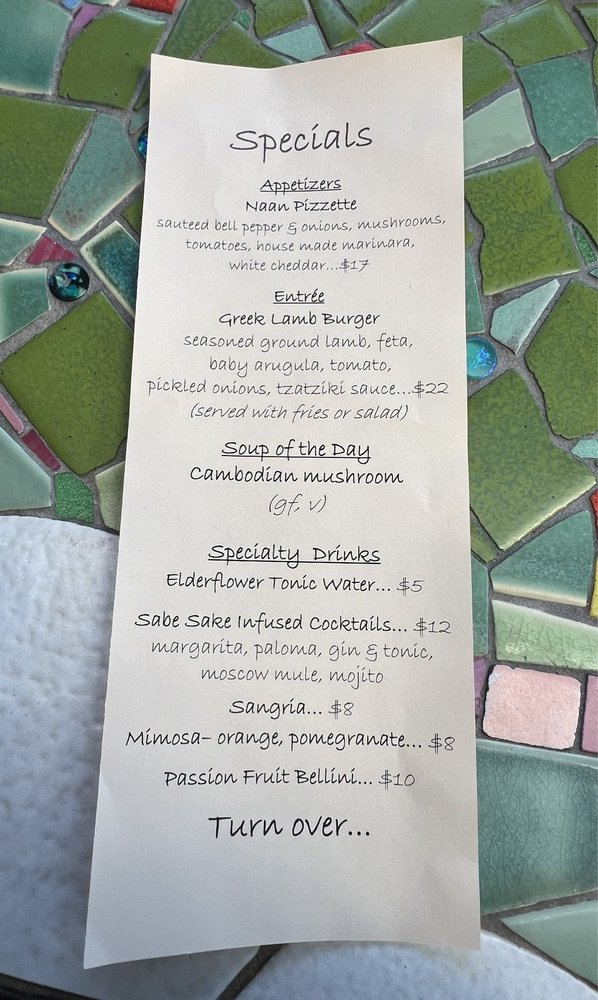 Specials
Appetizers
Naan Pizzette
sauteed bell pepper & onions, mushrooms,
tomatoes, house made marinara,
white cheddar...$17
Entrée
Greek Lamb Burger
seasoned ground lamb, feta,
baby arugula, tomato,
pickled onions, tzatziki sauce...$22
(served with fries or salad)
Soup of the Day
Cambodian mushroom
(gf, v)
Specialty Drinks
Elderflower Tonic Water... $5
Sabe Sake Infused Cocktails... $12
margarita, paloma, gin & tonic,
moscow mule, mojito
Sangria... $8
Mimosa- orange, pomegranate... $8
Passion Fruit Bellini... $10
Turn over...